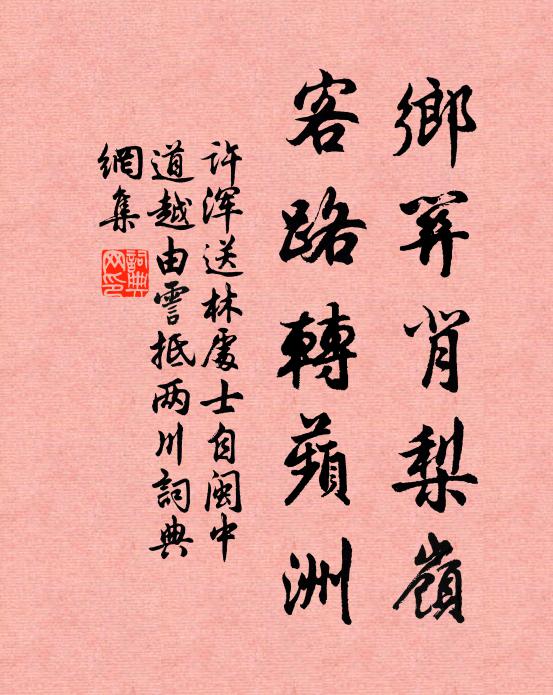 鄉關背梨嶺
客路轉蘋洲
許渾送林處士自閩中
道越由霅抵两川詞典
網集
詞典网印